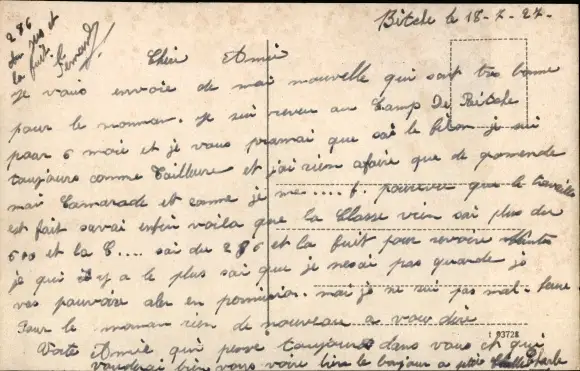 Bitche le 18-7-27.
286
au jus et
la fuit.
Fernand
Cher Amie
Je vous envoie de mai nouvelle qui sont tres bonne
pour le moman. Je sui revenu au Camp De Bitche
pour 6 moi et je vous promai que sai le filon je sui
toujours comme Tailleure et j'ai rien afaire que de comende
mai Camarade et comme je me.... f. pourvu que le travaille
est fait savai enfin voila que la Classe vien sai plus du
600 et la C.... sai du 286 et la fuit pour revoire
je qui il y a le plus sai que je nesai pas quande je
ves pouvoire aler en permision. mai je ne sui pas mal.
Pour le moman rien de nouveau a vou dire
93728
Votre Amie qui pense toujours dans vous et qui
vouderai bien vous voire bien le bonjour a